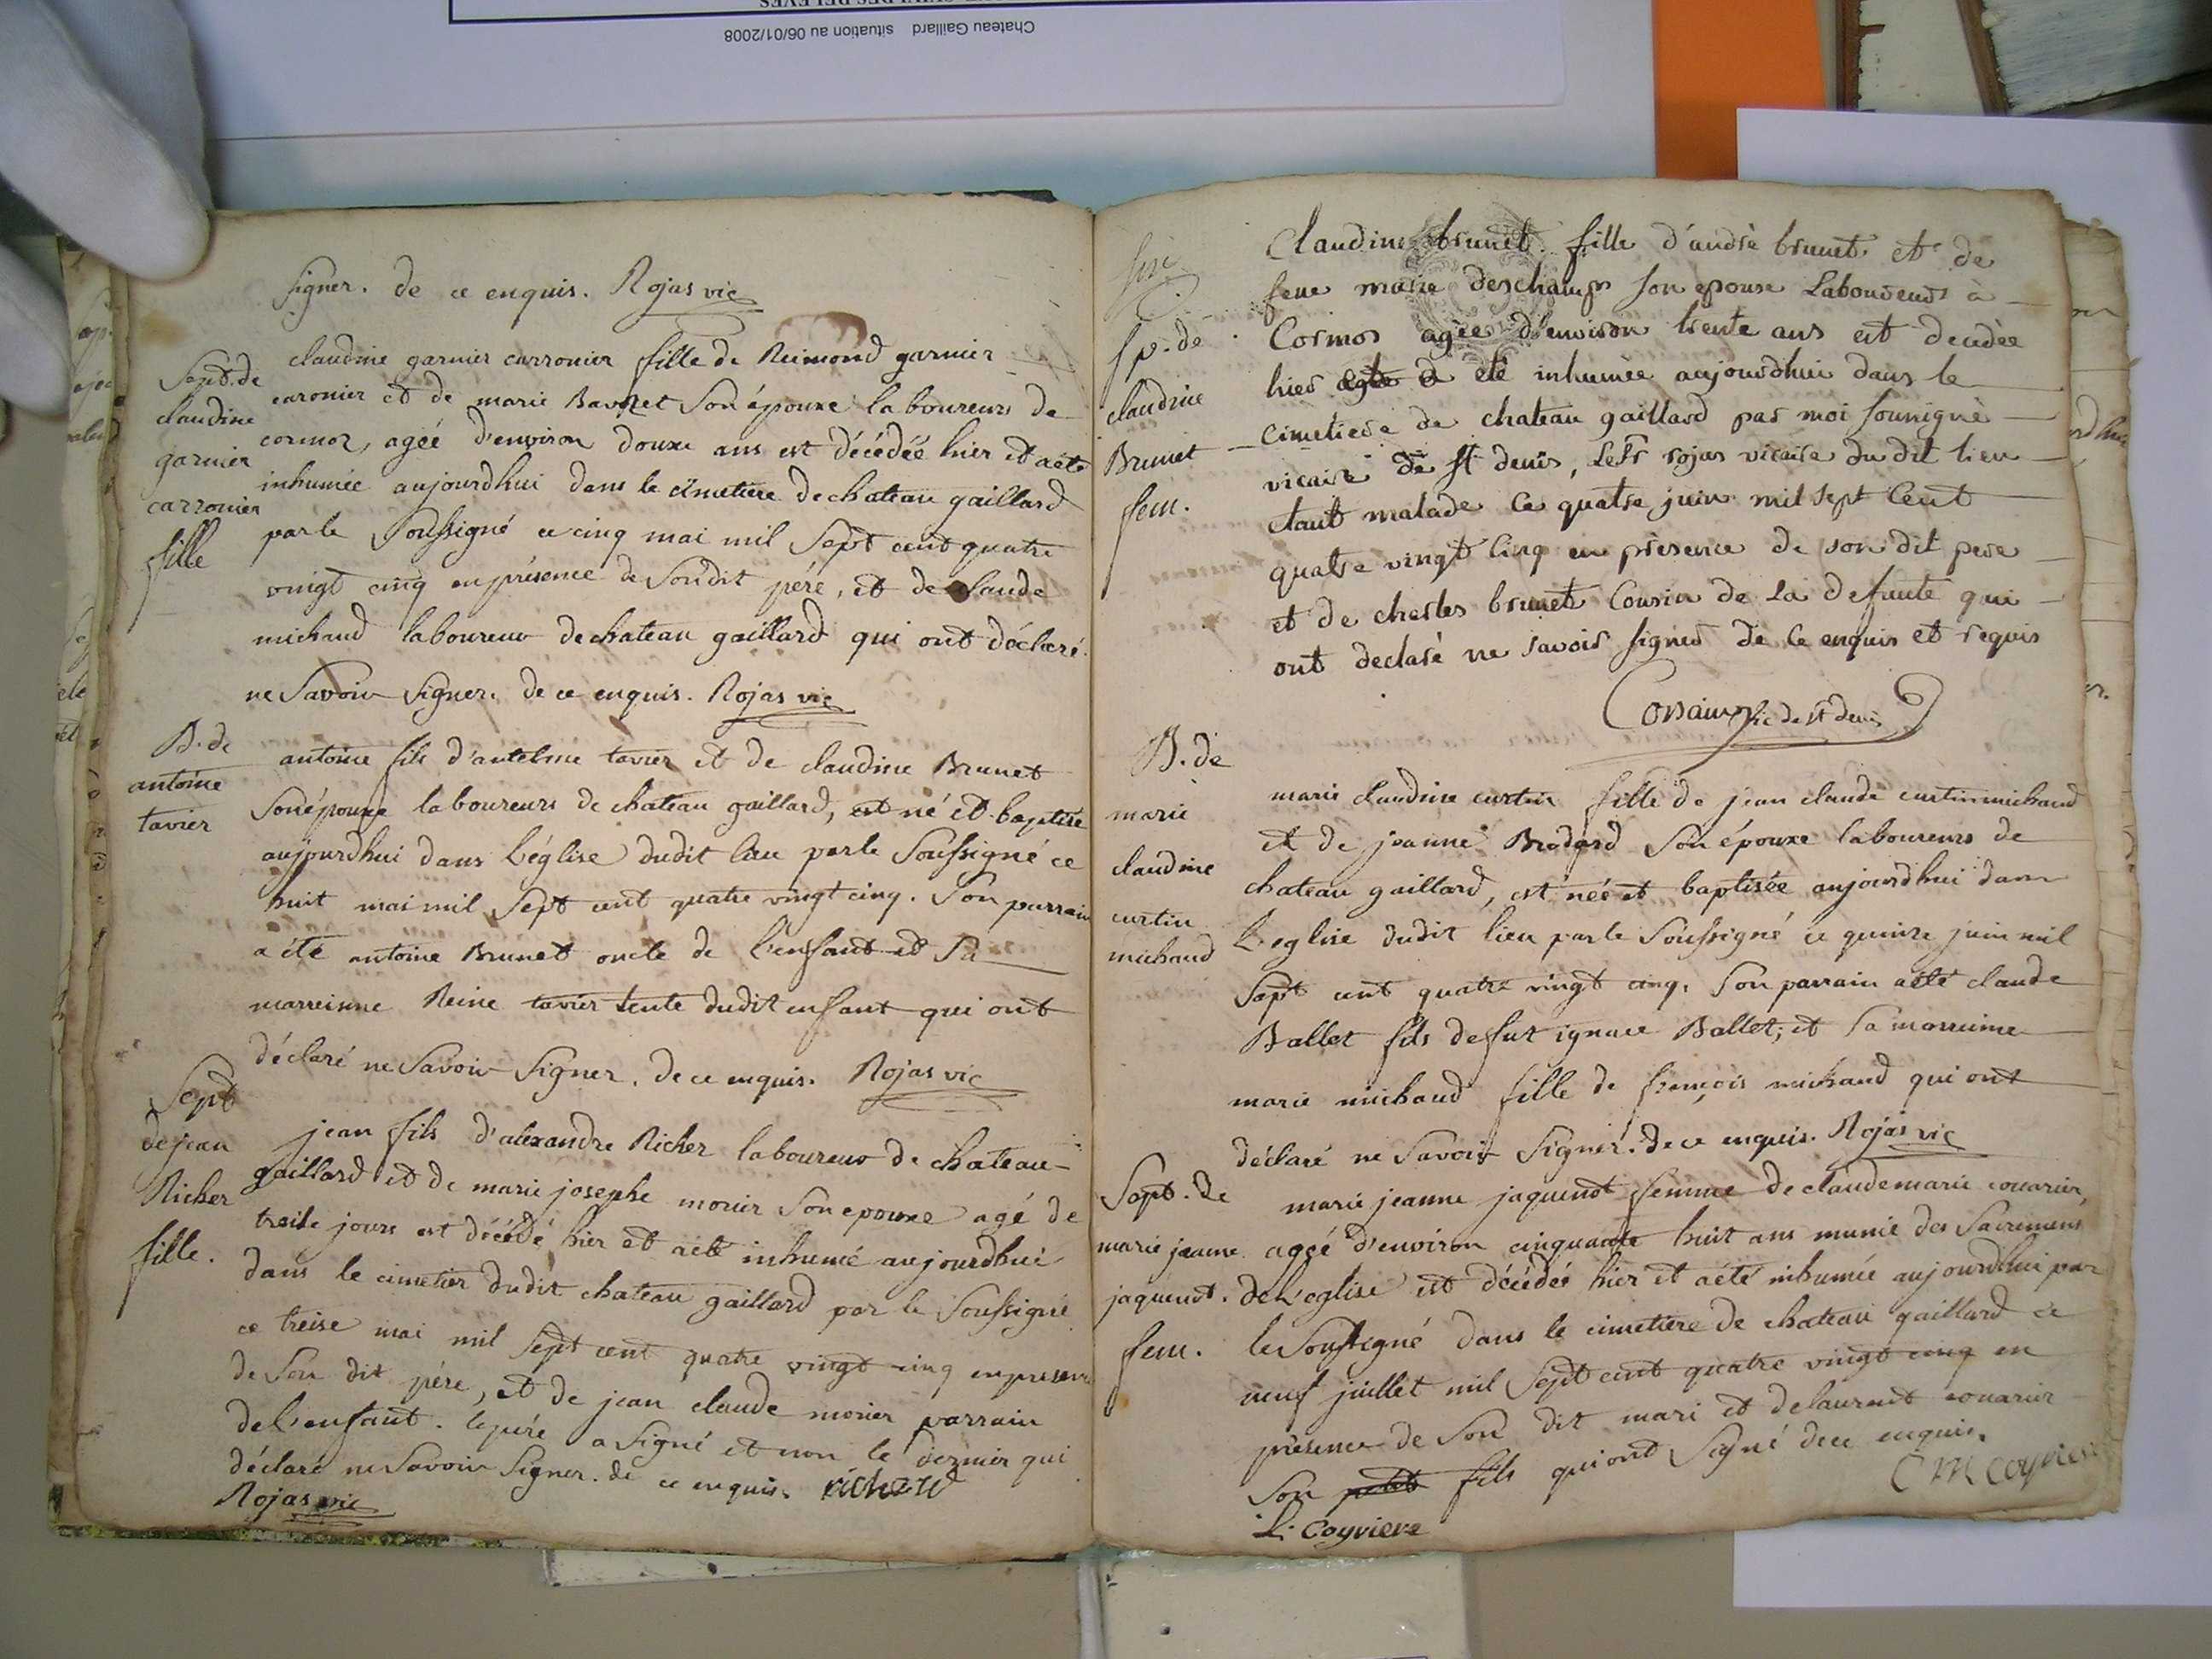 Chateau Gaillard situation au 06/01/2008
signer. de ce enquis. Rojas vic
Sept. de
claudine
garnier
carronier
fille
claudine garnier carronier fille de Reimond garnier
caronier et de marie Bavozet son épouxe laboureurs de
cormoz, ageé d'environ douxe ans est décédéé hier et a eté
inhumée aujourdhui dans le cimetiere de chateau gaillard
par le soussigné ce cinq mai mil sept cent quatre
vingt cinq en présence de son dit pére, et de claude
michaud laboureur de chateau gaillard qui ont déclaré
ne savoir signer. de ce enquis. Rojas vic
B. de
antoine
tavier
antoine fils d'antelme tavier et de claudine Brunet
son épouxe laboureurs de chateau gaillard, est né et baptisé
aujourdhui dans l'église dudit lieu par le soussigné ce
huit mai mil sept cent quatre vingt cinq. son parrain
a été antoine Brunet oncle de l'enfant et sa
marreinne Reine tavier tente dudit enfant qui ont
déclaré ne savoir signer. de ce enquis. Rojas vic
Sept
de jean
Richer
fille.
jean fils d'alexandre Richer laboureur de chateau-
gaillard et de marie josephe morier son epouxe agé de
treise jours est décédé hier et a eté inhumé aujourdhui
dans le cimetier dudit chateau gaillard par le soussigné
ce treise mai mil sept cent quatre vingt cinq en presence
de son dit pére, et de jean claude morier parrain
de l'enfant. le pére a signé et non le dernier qui
déclaré ne savoir signer. de ce enquis. richerd
Rojas vic
sp. de
claudine
Brunet
fem.
Claudine brunet fille d'andrè brunet et de
feue marie deschamps son epouse Laboureurs à
Cormos agèe d'environ trente ans est decedèe
hier et a eté inhumèe aujourdhui dans le
cimetiere de chateau gaillard par moi soussignè
vicaire de st denis, le Sr rojas vicaire du dit lieu
etant malade ce quatre juin mil sept Cent
quatre vingt Cinq en presence de son dit pere
et de charles brunet Cousin de La defunte qui
ont declarè ne savoir signer de ce enquis et requis
vic de st denis
B. de
marie
claudine
curtin
michaud
marie claudine curtin fille de jean claude curtin michaud
et de jeanne Brodard son épouxe laboureurs de
chateau gaillard, est néé et baptisée aujourdhui dans
l'eglise dudit lieu par le soussigné ce quinse juin mil
sept cent quatre vingt cinq. son parrain a eté claude
Ballet fils de fut ignace Ballet; et sa marreine
marie michaud fille de françois michaud qui ont
déclaré ne savoir signer. de ce enquis. Rojas vic
Sept. de
marie jeanne
jaquenot.
fem.
marie jeanne jaquenot femme de claude marie couarier,
ageé d'environ cinquante huit ans munie des sacremens
de l'eglise est décédéé hier et a eté inhumée aujourdhui par
le soussigné dans le cimetiere de chateau gaillard ce
neuf juillet mil sept cent quatre vingt cinq en
presence de son dit mari et de laurent couarier
son petit fils qui ont signé de ce enquis.
C M coyriere
L. Coyriere